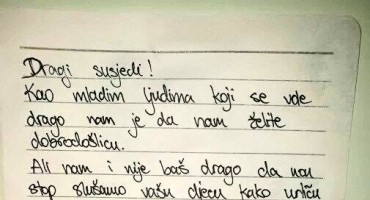 Dragi susjedi!
Kao mladim ljudima koji se vole
drago nam je da nam želite
dobrodošlicu.
Ali nam i nije baš drago da non
stop slušamo vašu djecu kako urliču